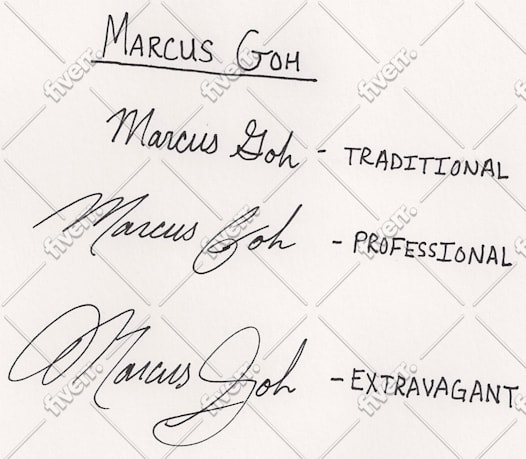 MARCUS GOH
Marcus Goh - TRADITIONAL
Marcus Goh - PROFESSIONAL
Marcus Goh - EXTRAVAGANT
fiverr.
fiverr.
fiverr.
fiverr.
fiverr.
fiverr.
fiverr.
fiverr.
fiverr.
fiverr.
fiverr.
fiverr.